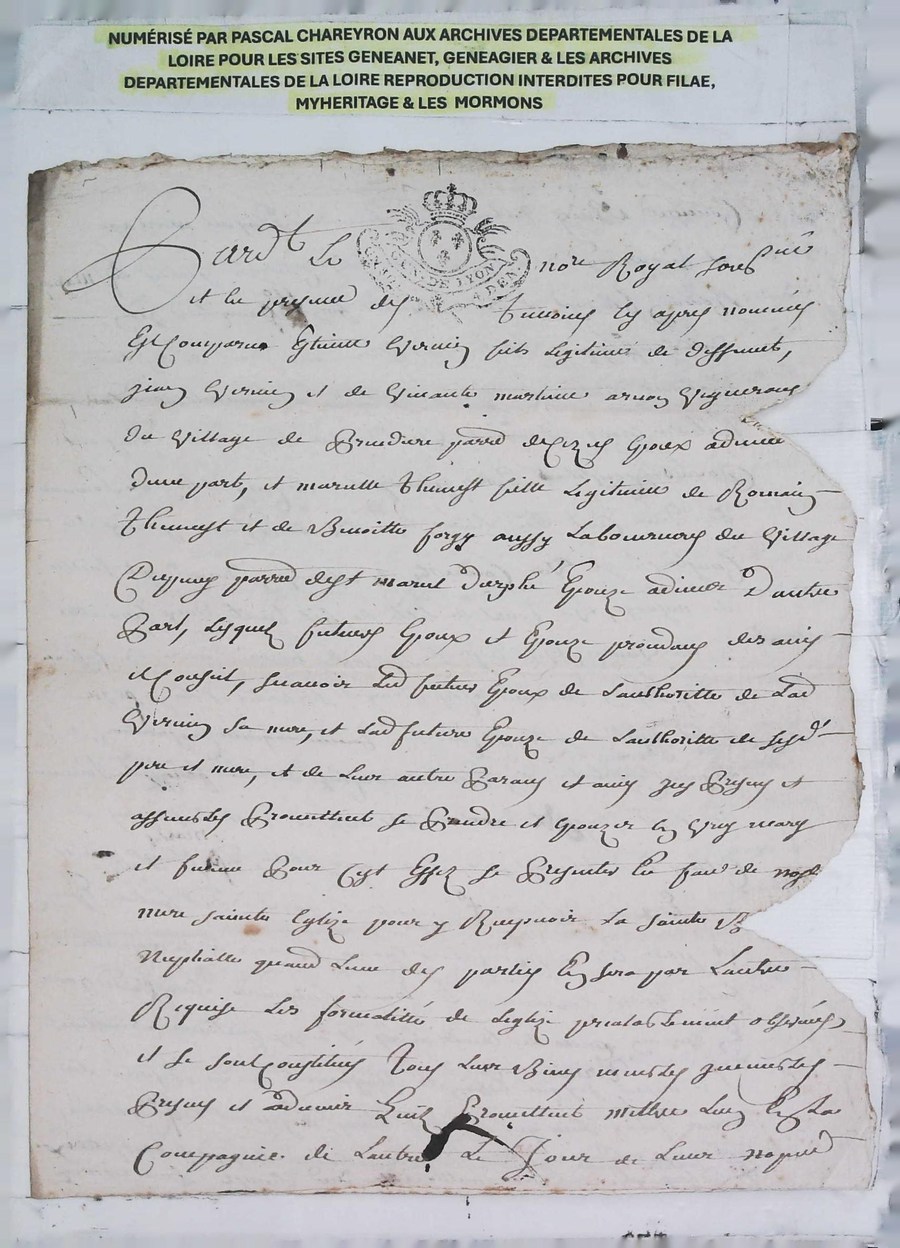 NUMÉRISÉ PAR PASCAL CHAREYRON AUX ARCHIVES DEPARTEMENTALES DE LA
LOIRE POUR LES SITES GENEANET, GENEAGIER & LES ARCHIVES
DEPARTEMENTALES DE LA LOIRE REPRODUCTION INTERDITES POUR FILAE,
MYHERITAGE & LES MORMONS
GEN. DE LYON
Pardt Le nore Royal soubsné
et en presence des temoins les apres nommés
Est Comparu Estienne Vernin fils legitime de deffunct,
jean Vernin et de Vivante martine Vignerons
du Village de parrd de Cezay Epoux advenir
Dune part, et fille legitime de Romain
et de Benoitte forge aussy Laboureurs du Village
parrd de st marcel Durphé Epouze advenir D'autre
Part, lesquels futurs Epoux et Epouze procedans des avis
et Conseil, scauoir Led futur Epoux de Lauthoritte de Lad
Vernin sa mere, et Lad future Epouze de Lauthoritte de sesd
pere et mere, et de Leur autre Parans et amis icy Presens et
assembles Promettent se Prendre et Epouzer en vray mary
et femme Pour cest Effet se Presenter En face de nostre
mere sainte Eglize pour y Recepuoir La sainte B
Nuptialle quand Lune des parties En sera par Lautre
Requise Les formalitté de Leglize prealablement observées
et se sont Constitués Tous Leurs Biens meubles immeubles
Presens et advenir Quils Promettent mettre Lun En La
Compagnie de Lautre Le Jour de Leurs nopces